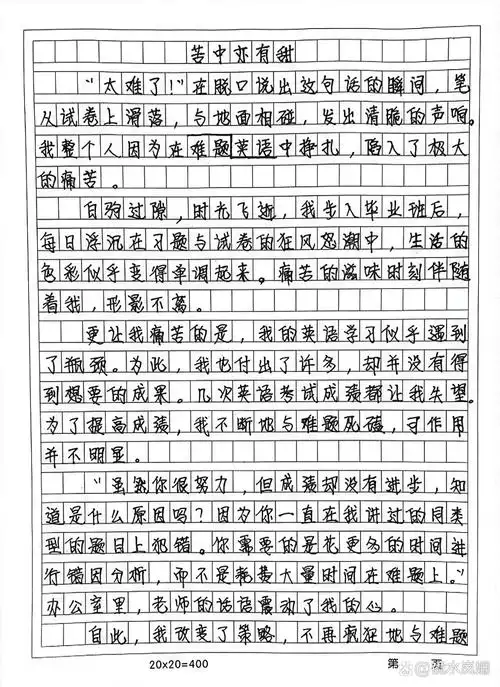 苦中亦有甜
“太难了！”在脱口说出这句话的瞬间，笔
从试卷上滑落，与地面相碰，发出清脆的声响。
我整个人因为在难题英语中挣扎，陷入了极大
的痛苦。
白驹过隙，时光飞逝，我步入毕业班后，
每日浮沉在习题与试卷的狂风怒潮中，生活的
色彩似乎变得单调起来。痛苦的滋味时刻伴随
着我，形影不离。
更让我痛苦的是，我的英语学习似乎遇到
了瓶颈。为此，我也付出了许多，却并没有得
到想要的成果。几次英语考试成绩都让我失望。
为了提高成绩，我不断地与难题死磕，可作用
并不明显。
“虽然你很努力，但成绩却没有进步，知
道是什么原因吗？因为你一直在我讲过的同类
型的题目上犯错。你需要的是花更多的时间进
行错因分析，而不是耗费大量时间在难题上。”
办公室里，老师的话语震动了我的心。
自此，我改变了策略，不再疯狂地与难题
20×20=400 第 页